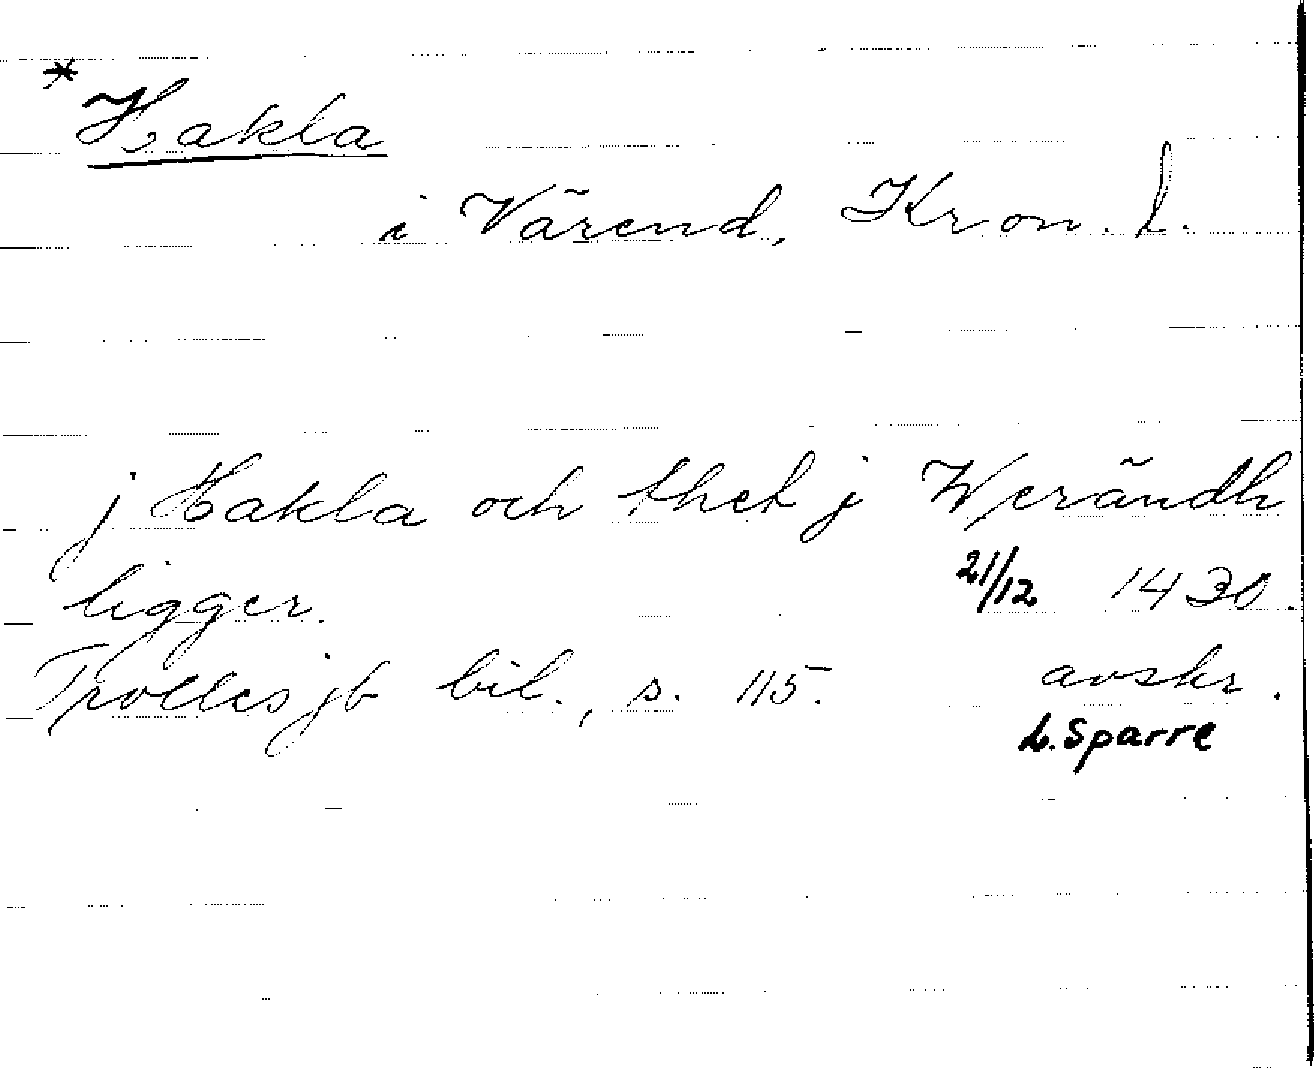 * Hakla
i Värend, Kron. l.
j Hakla och thet j Werändh
ligger. 21/12 1430.
Trolles jb bil., s. 115. avskr.
L. Sparre